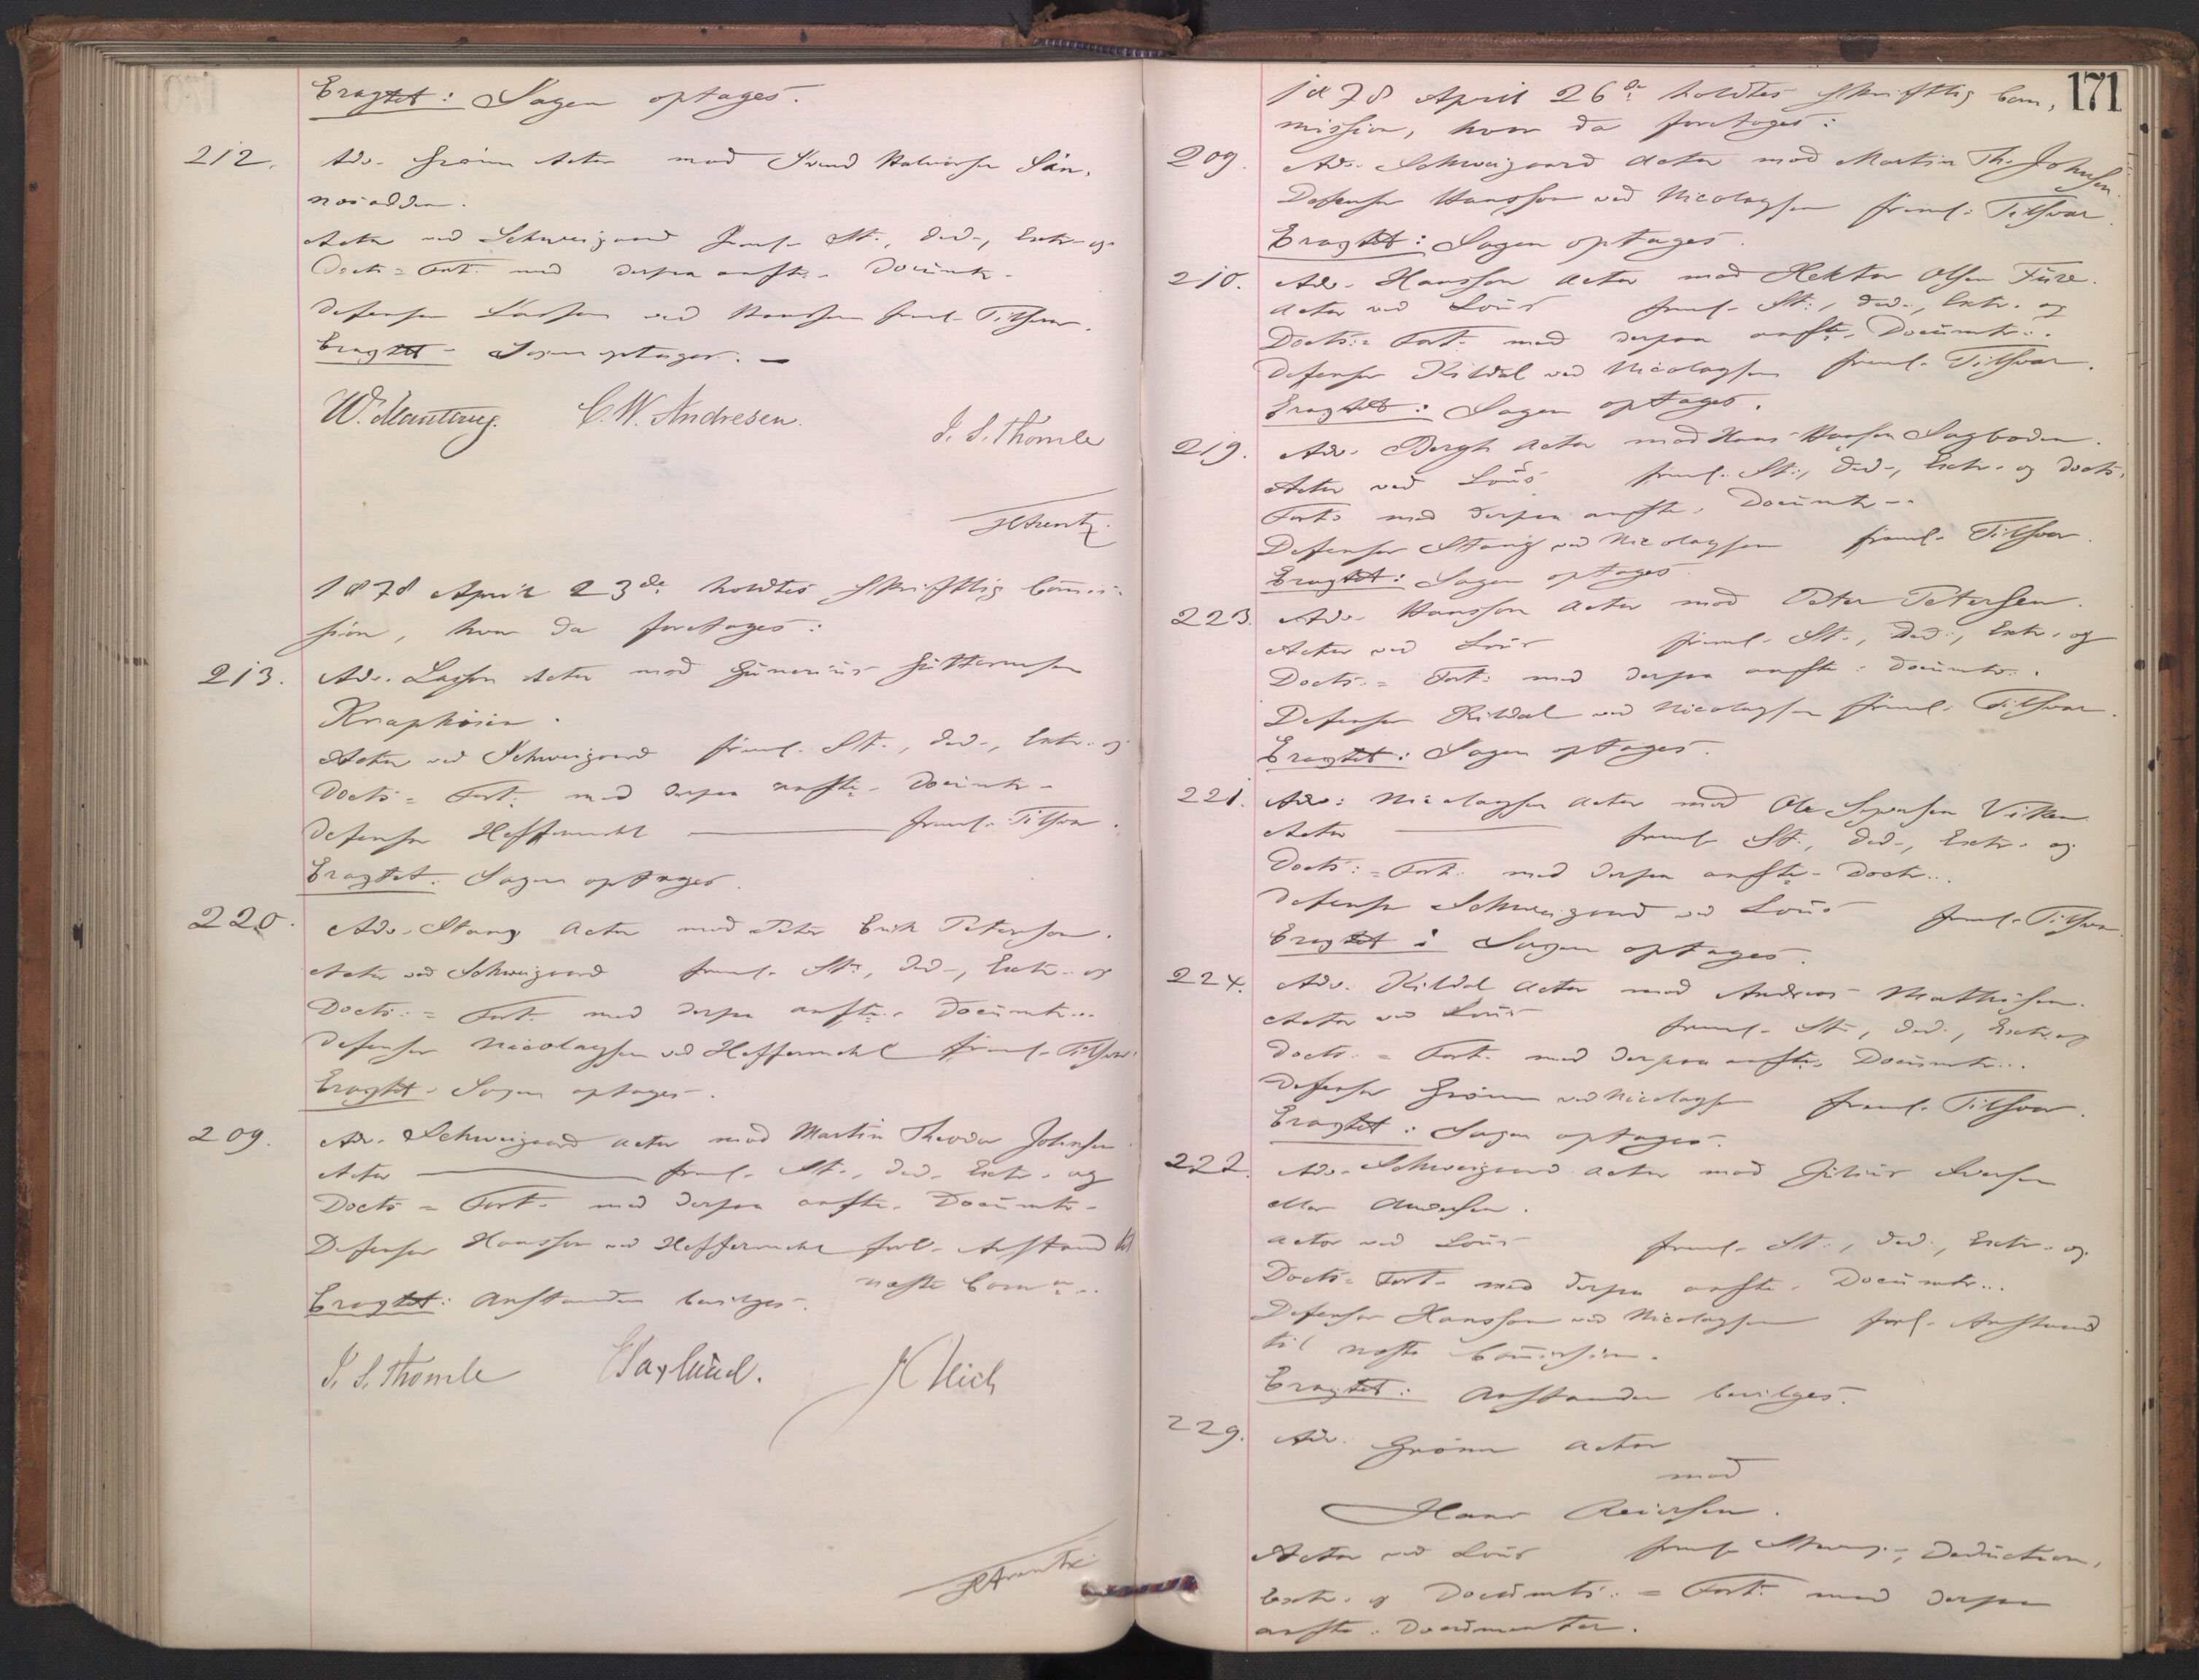 Eragtet: Sagen optages.
212. Adv. Grönn Actor mod Svend Halvorsen Sön,
nesödden.
Actor ved Schweigaard freml. St., Ded., Extr. og
Docts = Fort. med derpaa anfte. Documtr.
Defensor Lassen ved Hansson freml. Tilsvar.
Eragtet - Sagen optages. —
W. Manthey. C. W. Andresen.
J. S. Thomle
1878 April 23de holdtes skriftlig Commis-
sion, hvor da foretoges:
213. Adv. Lassen Actor mod Gunerius Guttormsen
Knaphusin.
Actor ved Schweigaard freml. St., Ded., Extr. og
Docts = Fort. med derpaa anfte. Documtr.
Defensor Heffermehl — freml. Tilsvar.
Eragtet: Sagen optages.
220. Adv. Stang Actor mod Peter Erik Peterson.
Actor ved Schweigaard freml. St., Ded., Extr. og
Docts. = Fort. med derpaa anfte. Documtr..
Defensor Nicolaysen ved Heffermehl freml. Tilsvar.
Eragtet - Sagen optages.
209. Adv. Schweigaard Actor mod Martin Theodor Johnsen
Actor — freml. St., Ded. Extr. og
Docts = Fort. med derpaa anfte. Documtr.
Defensor Hansson ved Heffermehl forl. Anstand til
næste Comn..
Eragtet: Anstanden bevilges.
J. S. Thomle
171
1878 April 26de holdtes skriftlig Com,
mission, hvor da foretoges:
209. Adv. Schweigaard Actor mod Martin Th. Johnsen.
Defensor Hansson ved Nicolaysen freml. Tilsvar.
Eragtet: Sagen optages.
210. Adv. Hansson Actor mod Hektor Olsen Fure.
Actor ved Lous freml. St., Ded., Extr. og
Docts. = Fort. med derpaa anfte. Documtr..
Defensor Kildal ved Nicolaysen freml. Tilsvar.
Eragtet: Sagen optages.
219. Adv. Bergh Actor mod Hans Hansen Sagboden.
Actor ved Lous freml. St., Ded., Extr. og Docts.
Fort. med derpaa anfte. Documtr..
Defensor Stang ved Nicolaysen freml. Tilsvar.
Eragtet: Sagen optages.
223. Adv. Hansson Actor mod Peter Petersen.
Actor ved Lous freml. St., Ded., Extr. og
Docts. = Fort. med derpaa anfte. Documtr..
Defensor Kildal ved Nicolaysen freml. Tilsvar.
Eragtet: Sagen optages.
221. Adv. Nicolaysen Actor mod Ole Syversen Viken
Actor — freml. St., Ded., Extr. og
Docts. = Fort. med derpaa anfte. Doctr...
Defensor Schweigaard ved Lous freml. Tilsvar.
Eragtet: Sagen optages.
224. Adv. Kildal Actor mod Andreas Mathisen.
Actor ved Lous freml. St., Ded., Extr. og
Docts. = Fort. med derpaa anfte. Documtr...
Defensor Grönn ved Nicolaysen freml. Tilsvar.
Eragtet: Sagen optages.
222. Adv. Schweigaard Actor mod Julius Iversen
eller Andersen.
Actor ved Lous freml. St., Ded., Extr. og
Docts = Fort. med derpaa anfte. Documtr...
Defensor Hansson ved Nicolaysen forl. Anstand
til næste Commission.
Eragtet: Anstanden bevilges.
229. Adv. Grönn Actor
mod
Hans Reiersen.
Actor ved Lous freml. Stevng., Deduction,
Extr. og Documts. = Fort. med derpaa
anfte. Documenter.